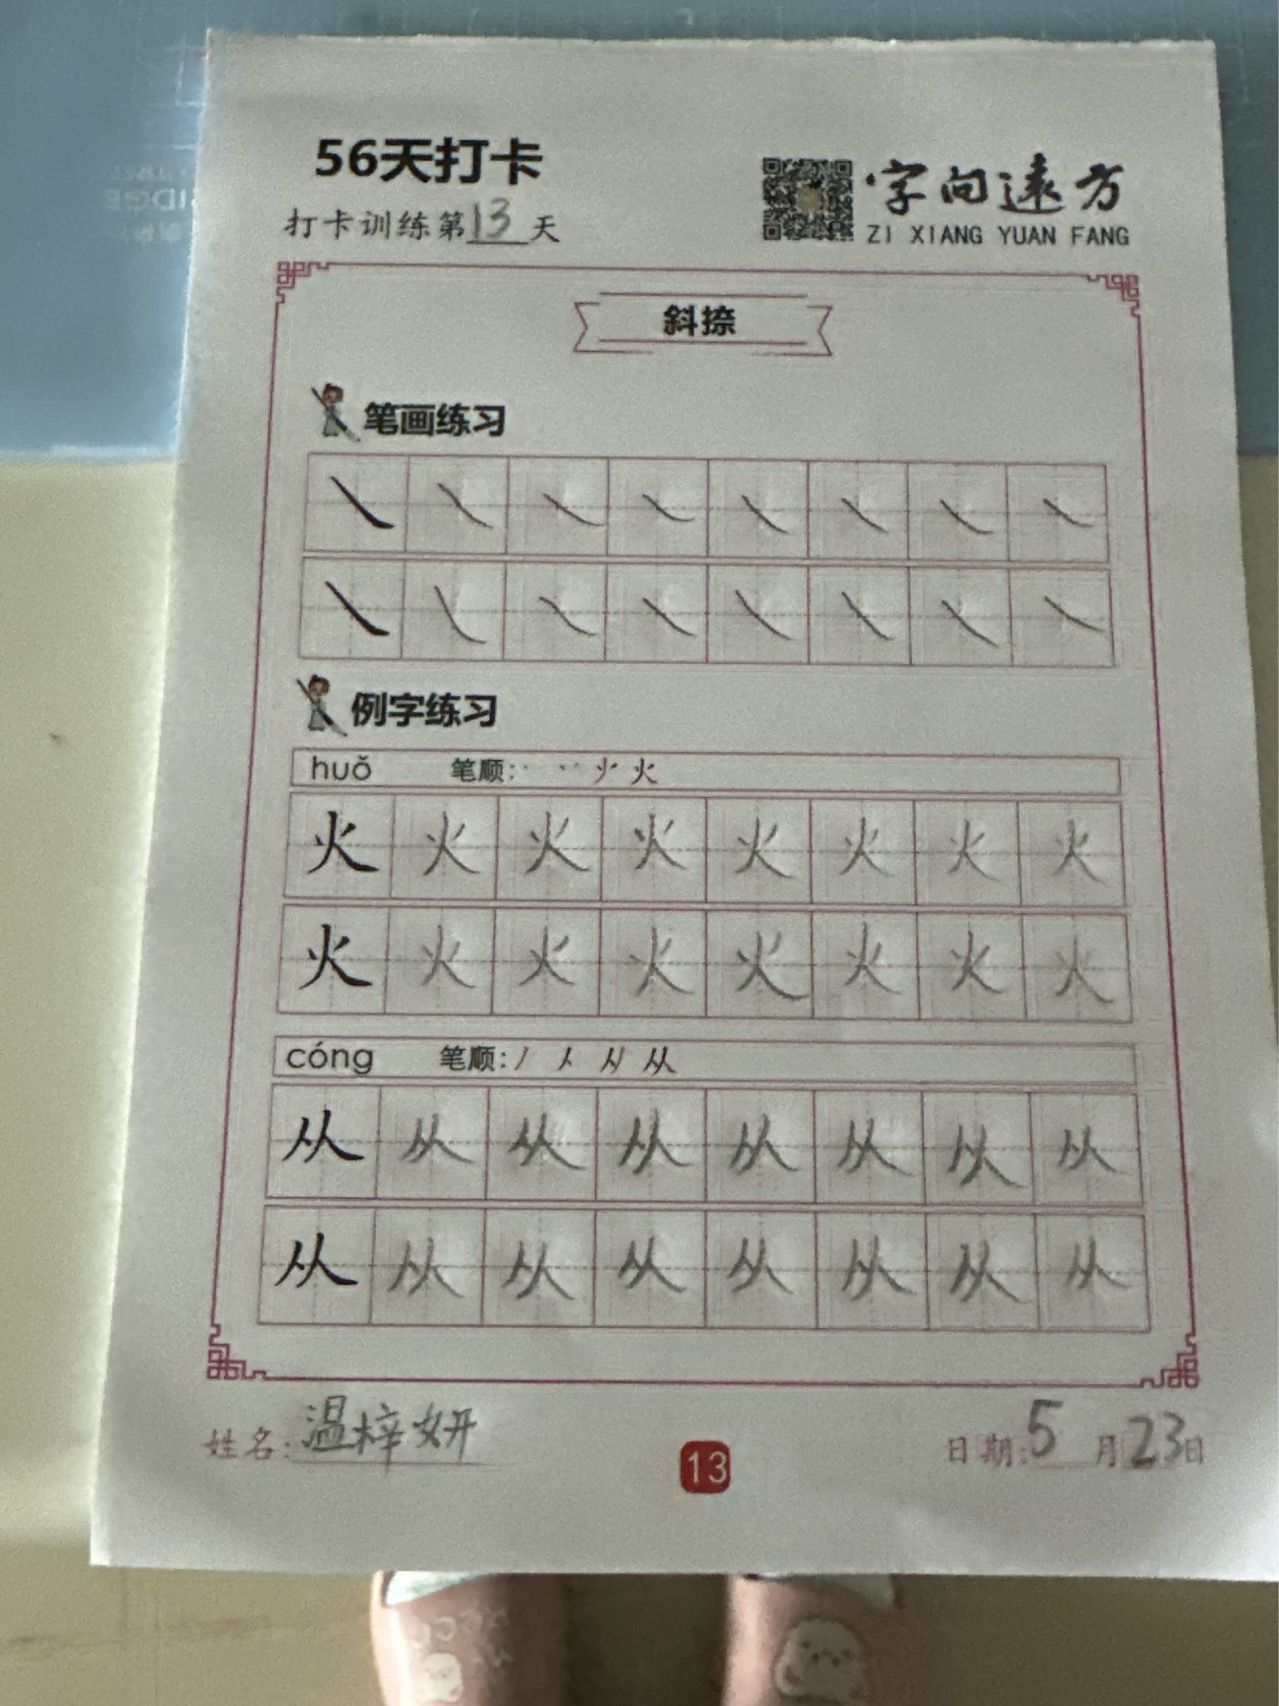 56天打卡
打卡训练第13天
字向遠方
ZI XIANG YUAN FANG
斜捺
笔画练习
例字练习
huǒ 笔顺: 火
火 火 火 火 火 火 火 火
火 火 火 火 火 火 火 火
cóng 笔顺: 丿 人 从
从 从 从 从 从 从 从 从
从 从 从 从 从 从 从 从
姓名: 温梓妍
13
日期: 5月23日